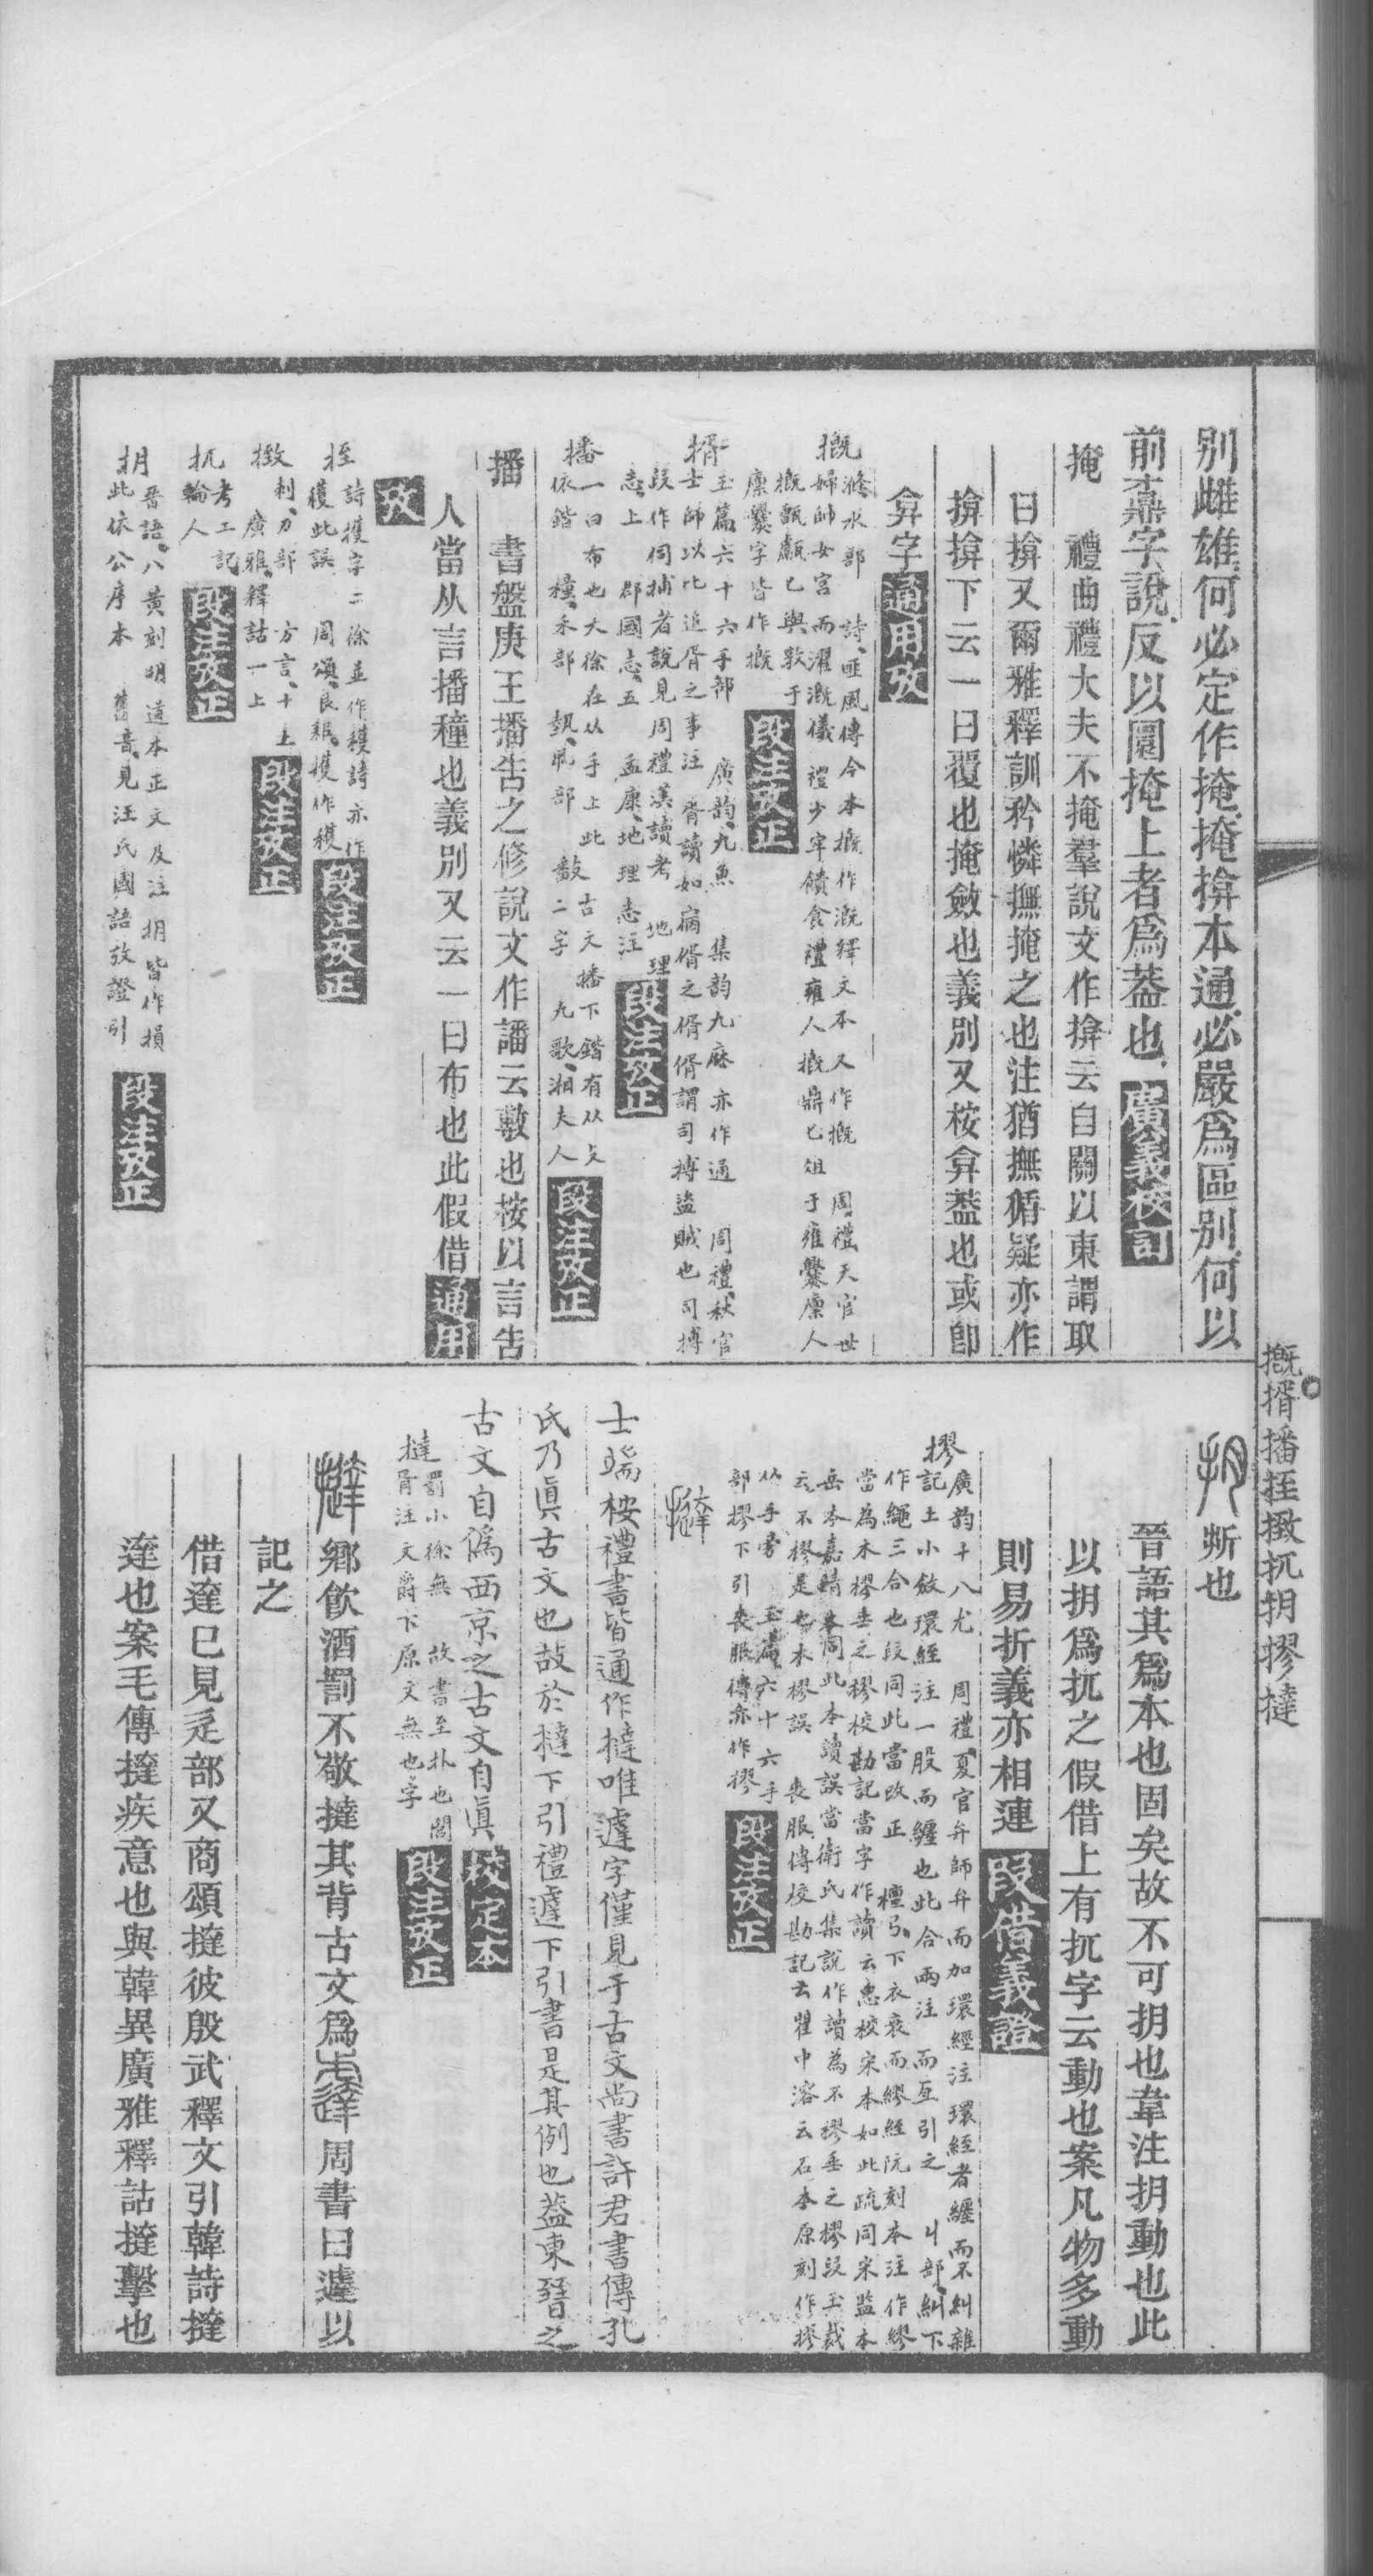 別雌雄何必定作掩掩揜本通必嚴爲區別何以
前鼒字說反以圜掩上者爲葢也廣義校訂
掩　禮曲禮大夫不掩羣說文作揜云自關以東謂取
曰揜又爾雅釋訓矜憐撫掩之也注猶撫循疑亦作
揜揜下云一曰覆也掩斂也義別又桉弇葢也或卽
弇字通用攷
摡滌水部　詩匪風傳今本摡作漑釋文本又作摡　周禮天官世
婦帥女宮而濯漑儀禮少牢饋食禮雍人摡鼎匕俎于雍爨廩人
摡甑甗匕與敦于
廩爨字皆作摡　段注攷正
揟玉篇六十六手部　廣韵九魚　集韵九麻亦作通　周禮秋官
士師以比追胥之事注　胥讀如宿偦之偦偦謂司搏盜賊也司搏
段作伺捕者說見周禮漢讀考　地理
志上　郡國志五　孟康地理志注　段注攷正
播一曰布也大徐在从手上此　古文播下鍇有从攴
依鍇　穜禾部　埶丮部　敽二字　九歌湘夫人　段注攷正
播　書盤庚王播告之修說文作譒云敷也桉以言告
人當从言播穜也義別又云一曰布也此假借通用
攷
挃　詩穫字二徐並作穫詩亦作
穫此誤　周頌良耜挃作穫　段注攷正
撴　刺刀部　方言十上
廣雅釋詁一上　段注攷正
扤考工記
輪人　段注攷正
抈晉語八黃刻明道本正文及注抈皆作損
此依公序本　舊音見汪氏國語攷證引　段注攷正
摡揟播挃撴扤抈摎撻
抈斯也
晉語其爲本也固矣故不可抈也韋注抈動也此
以抈爲扤之假借上有扤字云動也案凡物多動
則易折義亦相連　段借義證
摎廣韵十八尤　周禮夏官弁師弁而加環經注環絰者纏而不糾雜
記士小斂環絰注一股而纏也此合兩注而互引之　丩部糾下
作繩三合也段同此當改正　檀弓下衣衰而繆絰阮刻本注作繆
當為木樛垂之樛校勘記當字作讀云惠校宋本如此疏同宋監本
岳本嘉靖本同此本讀誤當衛氏集說作讀為不樛垂之樛段玉裁
云不樛是也木樛誤　喪服傳校勘記云瞿中溶云石本原刻作摎
从手旁　玉篇六十六手
部摎下引喪服傳亦作摎　段注攷正
撻
士端桉禮書皆通作撻唯遽字僅見于古文尚書許君書偁孔
氏乃眞古文也故於撻下引禮遽下引書是其例也葢東晉之
古文自僞西京之古文自眞　校定本
撻罰小徐無　故書至扑也閭
胥注文爵下原文無也字　段注攷正
撻鄉飮酒罰不敬撻其背古文爲𨔶周書曰遽以
記之
借達巳見辵部又商頌撻彼殷武釋文引韓詩撻
達也案毛傳撻疾意也與韓異廣雅釋詁撻擊也